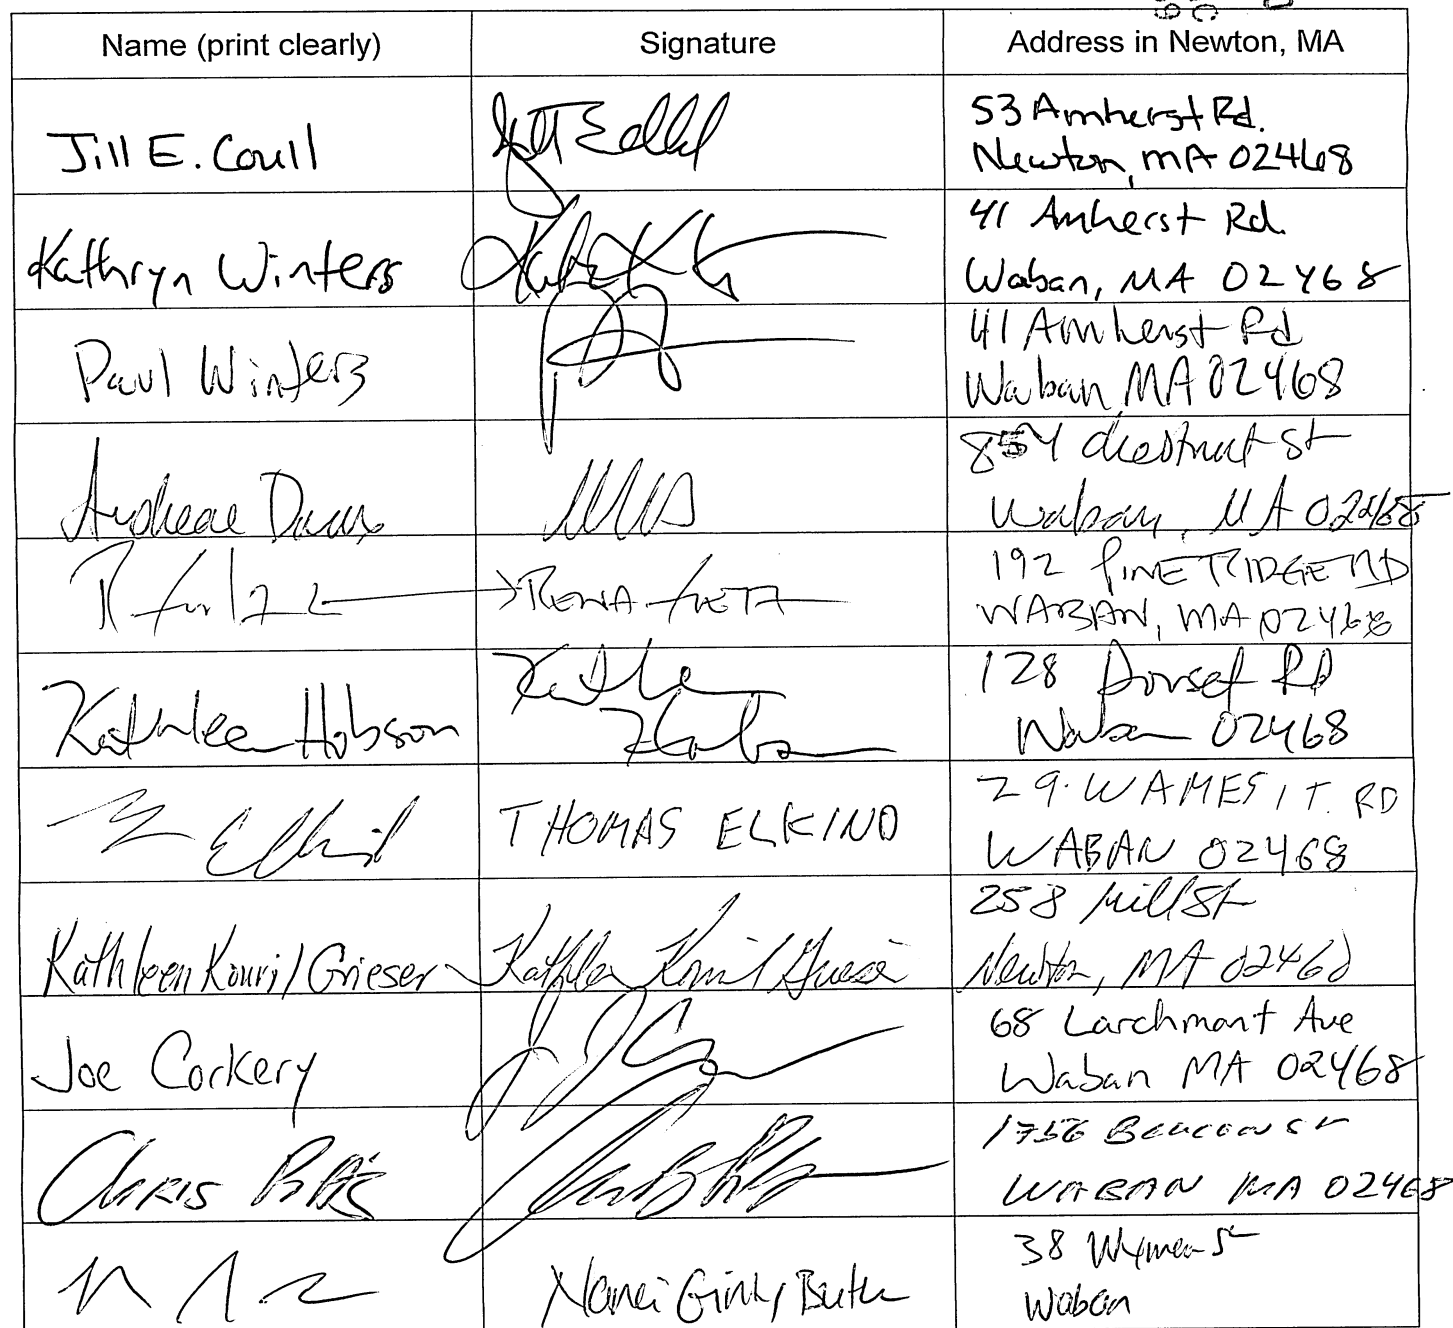 Name (print clearly) Signature Address in Newton, MA
Jill E. Coull
53 Amherst Rd.
Newton, MA 02468
Kathryn Winters
41 Amherst Rd.
Waban, MA 02468
Paul Winters
41 Amherst Rd
Waban MA 02468
854 Chestnut St
Waban, MA 02468
RENA GETZ
192 PINE RIDGE RD
WABAN, MA 02468
Kathleen Hobson
Kathleen
Hobson
128 Dorset Rd
Waban 02468
Elkind THOMAS ELKIND
29 WAMESIT RD
WABAN 02468
Kathleen Kouril Grieser Kathleen Kouril Grieser
258 Mill St
Newton, MA 02460
Joe Corkery
68 Larchmont Ave
Waban MA 02468
CHRIS PITTS
1756 Beacon St
WABAN MA 02468
Nanci Ginty Butler
38 Wyman St
Waban